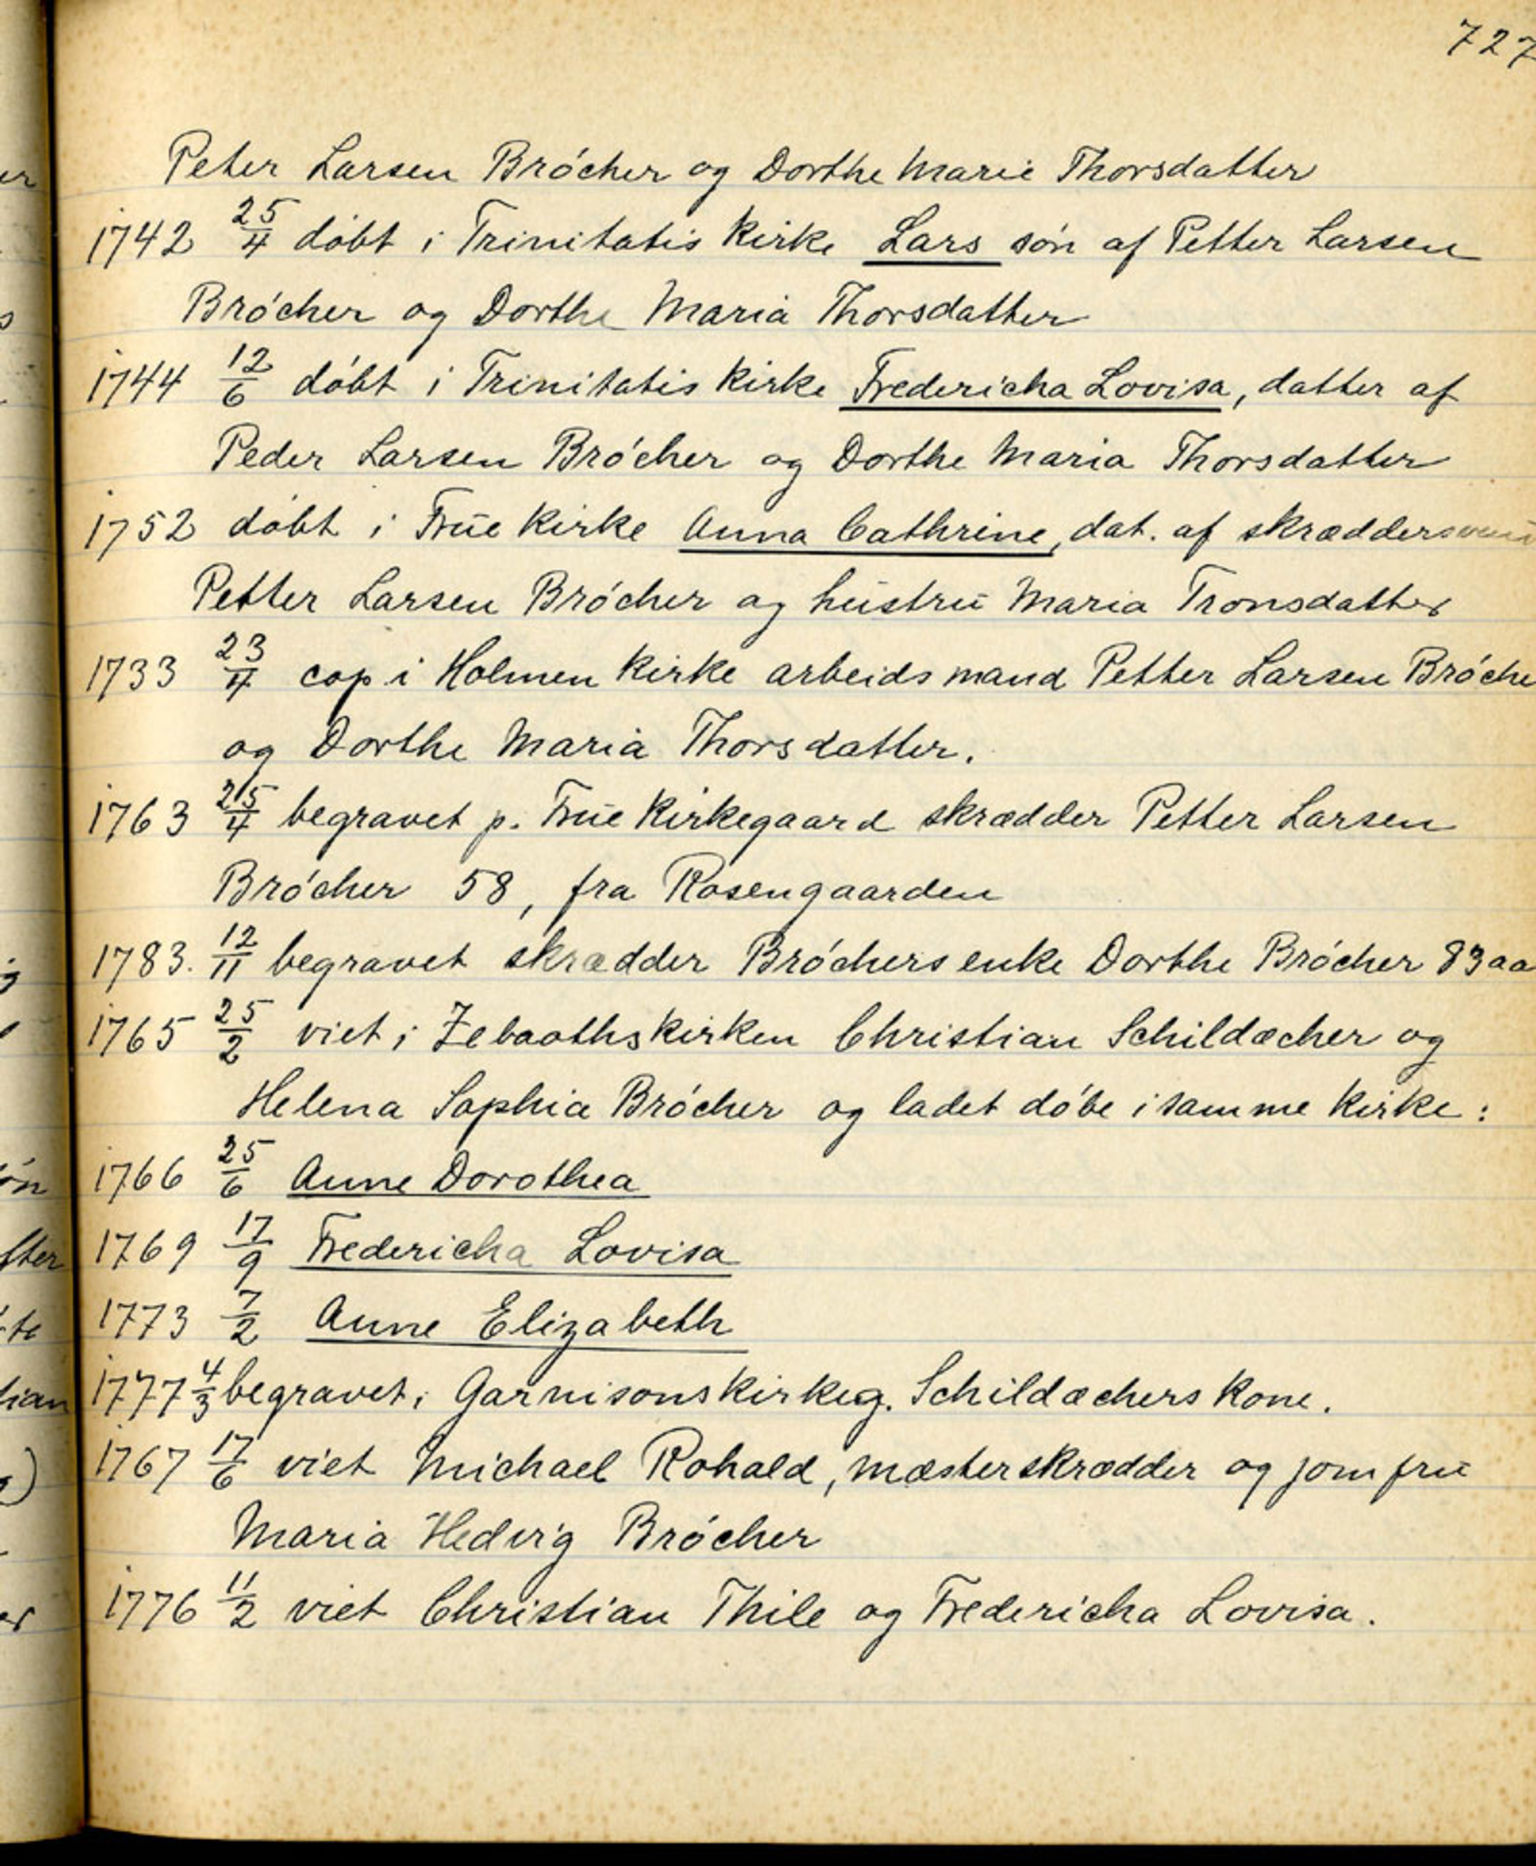 727
Peter Larsen Brócher og Dorthe Marie Thorsdatter
1742 25/4 dóbt i Trinitatis Kirke Lars són af Petter Larsen
Brócher og Dorthe Maria Thorsdatter
1744 12/6 dóbt i Trinitatis Kirke Fredericha Lovisa, datter af
Peder Larsen Brócher og Dorthe Maria Thorsdatter
1752 dóbt i Frue Kirke Anna Cathrine, dat. af skræddersvend
Petter Larsen Brócher og hustru Maria Tronsdatter
1733 23/4 cop i Holmen Kirke arbeidsmand Petter Larsen Bróche
og Dorthe Maria Thorsdatter.
1763 25/4 begravet p. Frue Kirkegaard skrædder Petter Larsen
Brócher 58, fra Rosengaarden
1783. 12/11 begravet skrædder Bróchers enke Dorthe Brócher 83 aa
1765 25/2 viet i Zebaothskirken Christian Schildæcher og
Helena Sophia Brócher og ladet dóbe i samme Kirke:
1766 25/6 Anne Dorothea
1769 17/9 Fredericha Lovisa
1773 7/2 Anne Elizabeth
1777 4/3 begravet i Garnisonskirkeg. Schildæchers Kone.
1767 17/6 viet Michael Rohald, mæsterskrædder og jomfru
Maria Hedvig Brócher
1776 11/2 viet Christian Thile og Fredericha Lovisa.